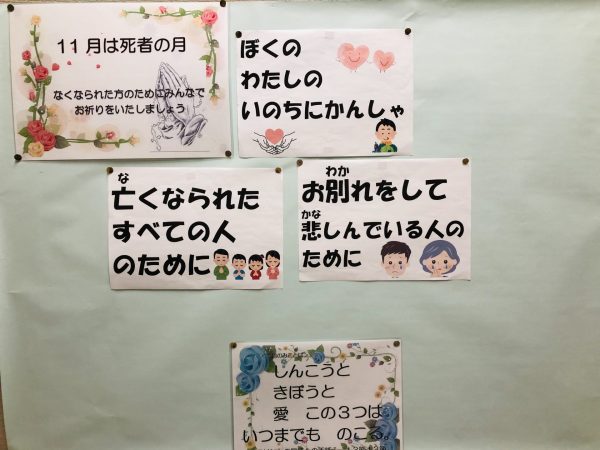 11月は死者の月
なくなられた方のためにみんなで
お祈りをいたしましょう
ぼくの
わたしの
いのちにかんしゃ
な
亡くなられた
すべての人
のために
わか
お別れをして
かな
悲しんでいる人の
ために
しんこうと
きぼうと
愛 この3つは
いつまでも のこる。